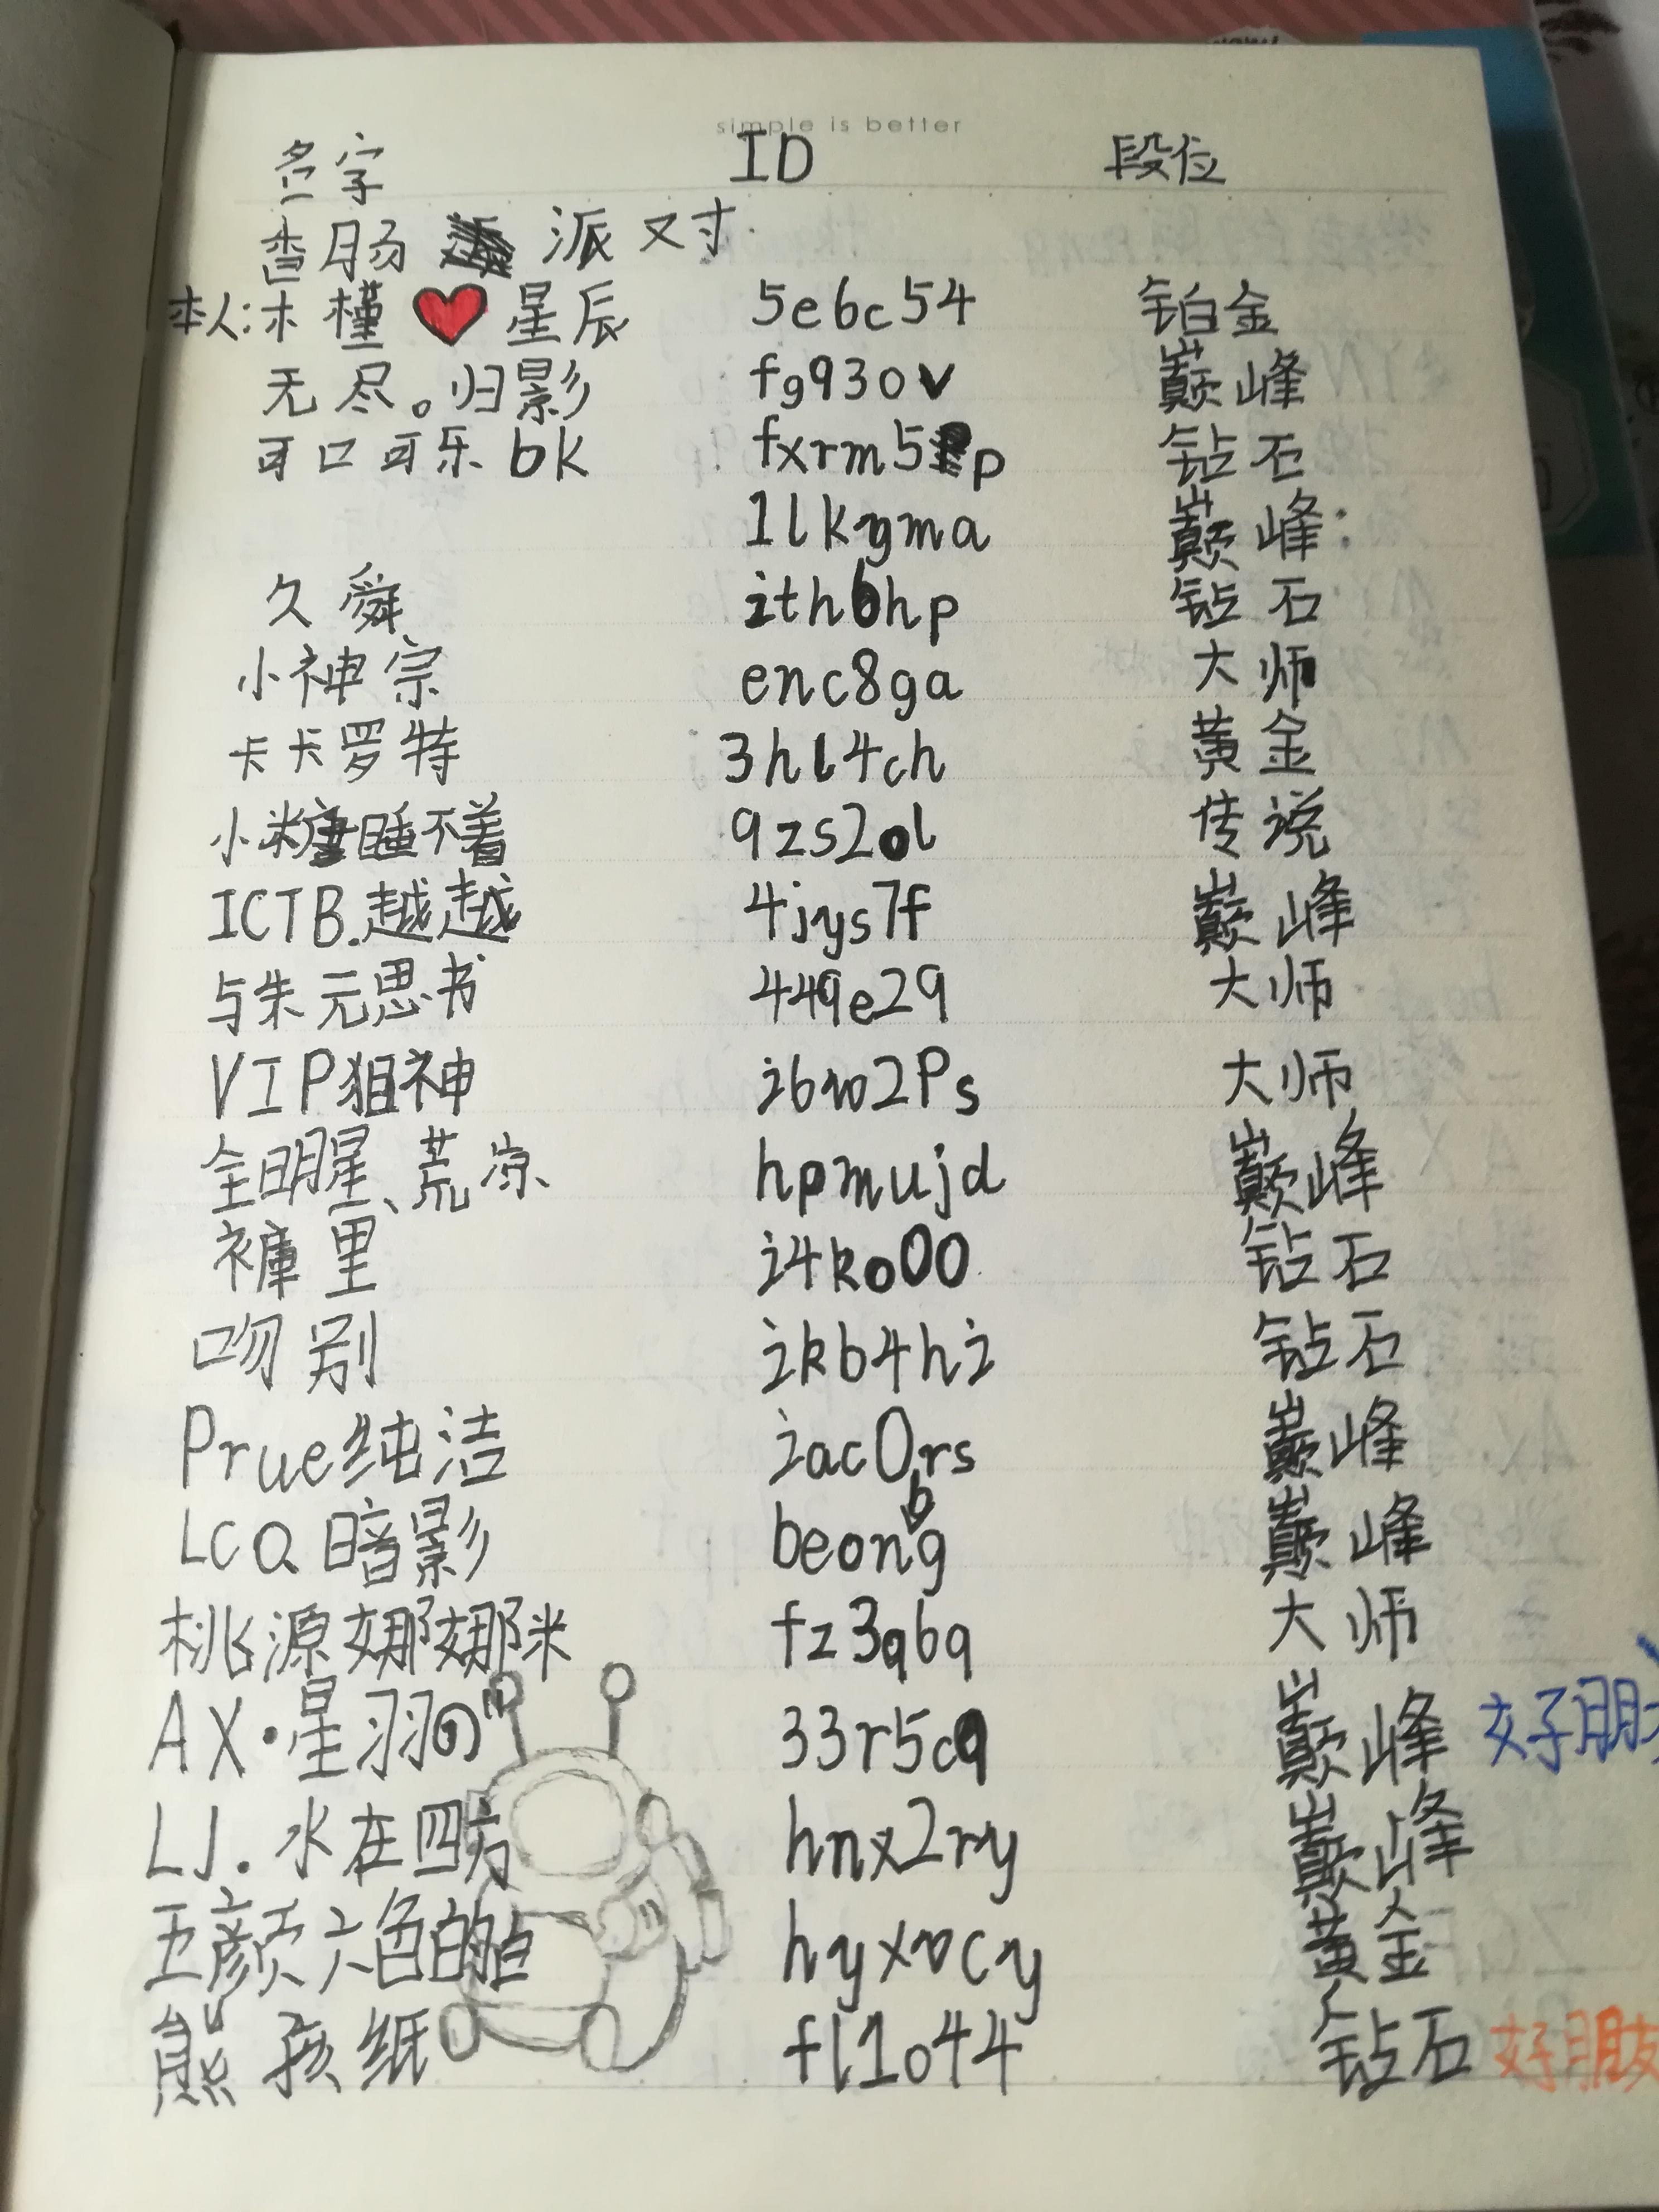 simple is better
名字 ID 段位
香肠派对
本人:木槿❤星辰 5e6c54 铂金
无尽。归影 fg930v 巅峰
可口可乐bk fxrm5p 钻石
1lkgma 巅峰:
久舜 ith6hp 钻石
小神宗 enc8ga 大师
卡卡罗特 3hl4ch 黄金
小糖睡不着 9zs2ol 传说
ICTB.越越 4jys7f 巅峰
与朱元思书 449e29 大师
VIP狙神 i6w2Ps 大师
全明星、荒凉 hpmujd 巅峰
裤里 i4ko00 钻石
吻别 ikb4hi 钻石
Prue纯洁 iac0rs 巅峰
LCQ暗影 beonbg 巅峰
桃源娜娜米 fz3q6q 大师
AX·星羽 33r5cq 巅峰 好朋
LJ.水在四方 hnx2ry 巅峰
五颜六色的 hyxvcy 黄金
熊孩纸 fl1o44 钻石 好朋友